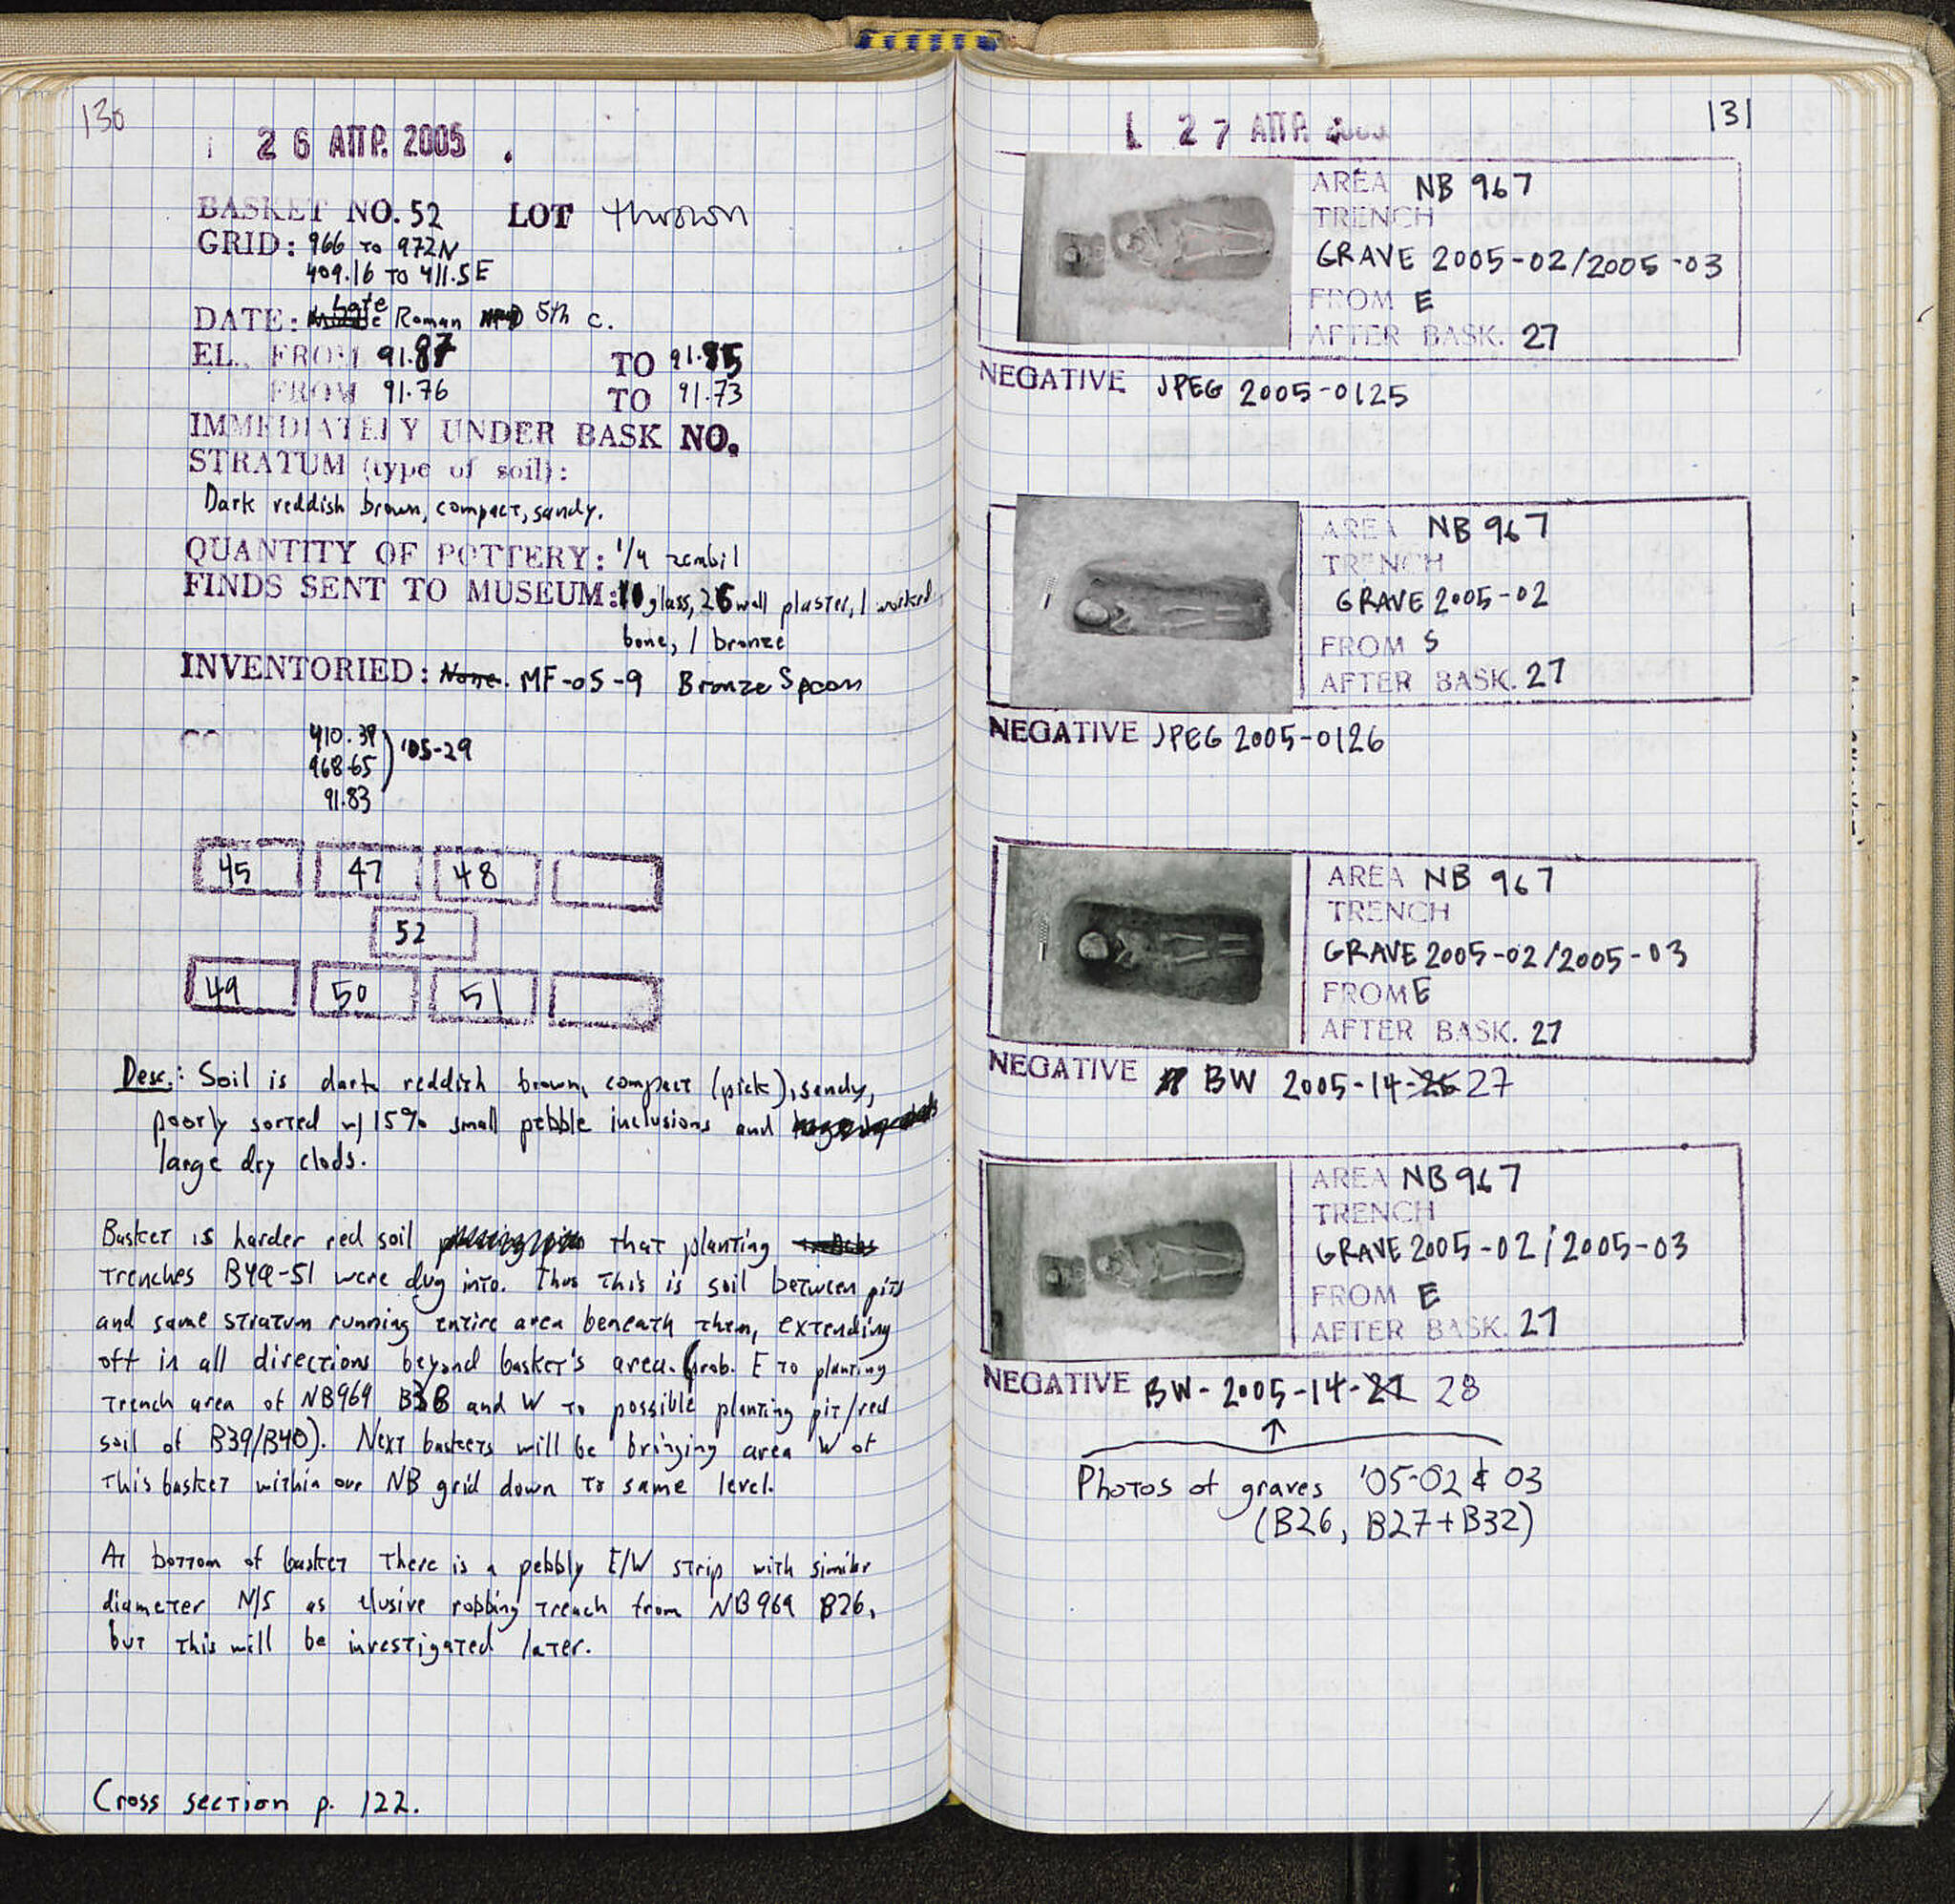 130
26 ΑΠΡ. 2005
BASKET NO. 52 LOT thrown
GRID: 966 TO 972N
409.16 TO 411.5E
DATE: Late Roman 5th c.
EL. FROM 91.87 TO 91.85
FROM 91.76 TO 91.73
IMMEDIATELY UNDER BASK NO.
STRATUM (type of soil):
Dark reddish brown, compact, sandy.
QUANTITY OF POTTERY: 1/4 zembil
FINDS SENT TO MUSEUM: 10 glass, 26 wall plaster, 1 worked
bone, 1 bronze
INVENTORIED: None. MF-05-9 Bronze Spoon
410.39
968.65 ) '05-29
91.83
45 47 48
52
49 50 51
Desc.: Soil is dark reddish brown, compact (pick), sandy,
poorly sorted w/ 15% small pebble inclusions and
large dry clods.
Basket is harder red soil that planting
trenches B49-51 were dug into. Thus this is soil between pits
and same stratum running entire area beneath them, extending
off in all directions beyond basket's area. (prob. E to planting
trench area of NB969 B38 and W to possible planting pit/red
soil of B39/B40). Next baskets will be bringing area W of
this basket within our NB grid down to same level.
At bottom of basket there is a pebbly E/W strip with similar
diameter N/S as elusive robbing trench from NB969 B26,
but this will be investigated later.
Cross section p. 122.
131
27 ΑΠΡ.
AREA NB 967
TRENCH
GRAVE 2005-02/2005-03
FROM E
AFTER BASK. 27
NEGATIVE JPEG 2005-0125
AREA NB 967
TRENCH
GRAVE 2005-02
FROM S
AFTER BASK. 27
NEGATIVE JPEG 2005-0126
AREA NB 967
TRENCH
GRAVE 2005-02/2005-03
FROM E
AFTER BASK. 27
NEGATIVE BW 2005-14-26 27
AREA NB 967
TRENCH
GRAVE 2005-02/2005-03
FROM E
AFTER BASK. 27
NEGATIVE BW-2005-14-27 28
↑
Photos of graves '05-02 & 03
(B26, B27+B32)